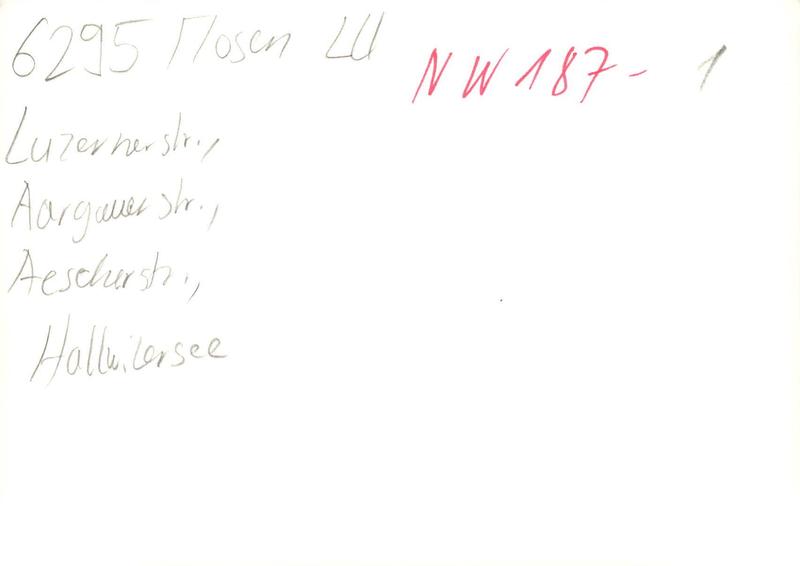 6295 Mosen LU
NW 187-1
Luzernerstr.,
Aargauerstr.,
Aescherstr.,
Hallwilersee